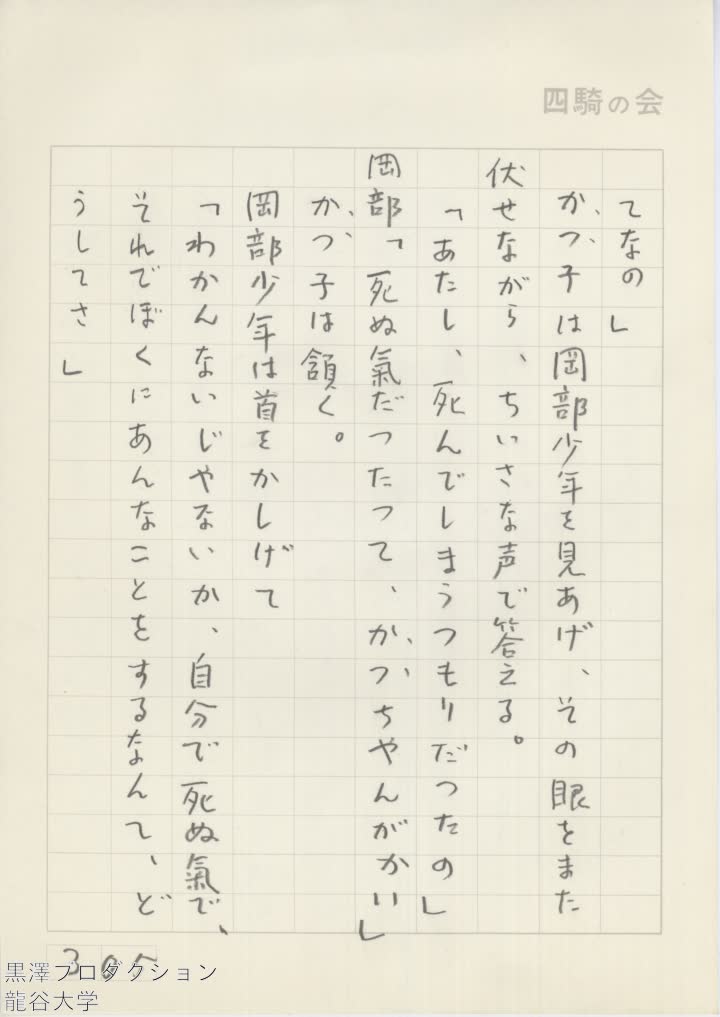 四騎の会
てなの」
かつ子は岡部少年を見あげ、その眼をまた
伏せながら、ちいさな声で答える。
「あたし、死んでしまうつもりだつたの」
岡部「死ぬ氣だつたつて、かつちやんがかい」
かつ子は頷く。
岡部少年は首をかしげて
「わかんないじやないか、自分で死ぬ氣で、
それでぼくにあんなことをするなんて、ど
うしてさ」
黒澤プロダクション
龍谷大学